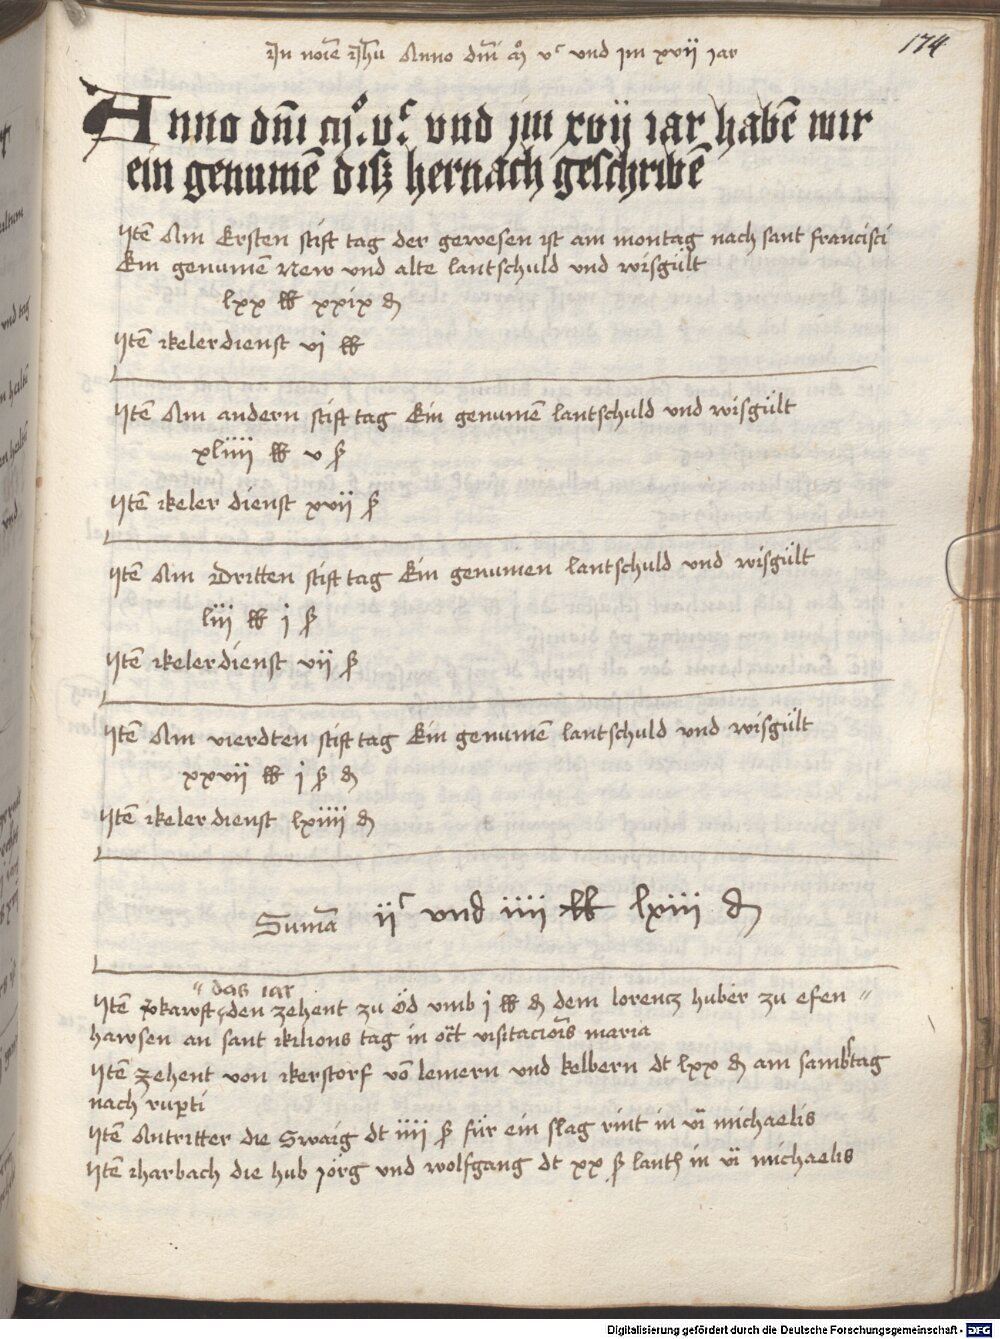 In noīe Jhū Anno dm̄i m° vᶜ und im xvij iar
174
Anno dn̄i m°. vᶜ und jm xvij iar habē wir
ein genumē disz hernach geschribē
Itē Am Ersten stift tag der gewesen ist am montag nach sant francisci
Ein genumē New und alte lantschuld und wisgült
lxx ℔ xxix ₰
Itē kelerdienst vj ℔
Itē Am andern stift tag Ein genumē lantschuld und wisgült
xliiij ℔ v ß
Itē keler dienst xvij ß
Itē Am Dritten stift tag Ein genumen lantschuld und wisgült
liij ℔ j ß
Itē kelerdienst vij ß
Itē Am vierdten stift tag Ein genumē lantschuld und wisgült
xxvij ℔ j ß ₰
Itē kelerdienst lxiiij ₰
Sumā ijᶜ und iiij ℔ lxiij ₰
das iar
Itē v̄kawft den zehent zu Öd umb j ℔ ₰ dem lorencz huber zu efen
hawsen an sant kilions tag in oct̄ visitacionis maria
Itē zehent von kerstorf vō lemern und kelbern dt lxx ₰ am sambstag
nach rup̄ti
Itē Antritter die Swaig dt iiij ß für ein slag rint in vi michaelis
Itē harbach die hub jörg und wolfgang dt xx ß lanth in vi michaelis
Digitalisierung gefördert durch die Deutsche Forschungsgemeinschaft - DFG